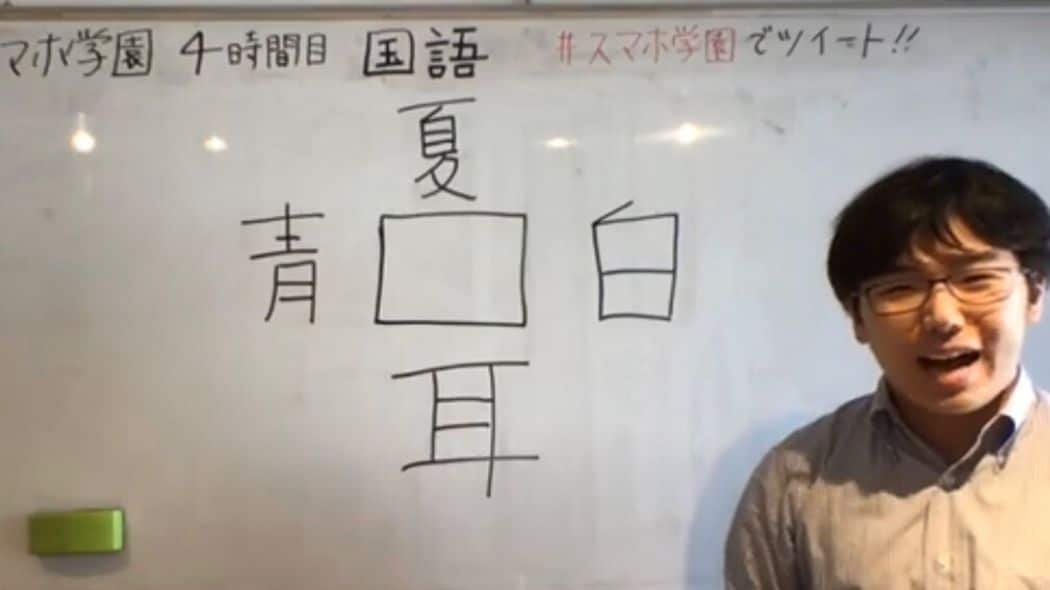 マホ学園 4時間目 国語 #スマホ学園でツイート!!
夏
青 白
耳